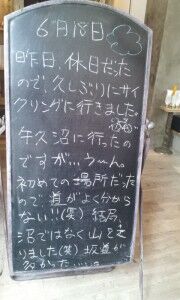 6月18日
昨日、休日だった
ので、久しぶりにサイ
クリングに行きました。
牛久沼に行ったの
ですが…う〜ん。
初めての場所だった
ので、道がよく分から
ない!!(笑)結局、
沼ではなく山を走
りました(笑)坂道が
多かった……。